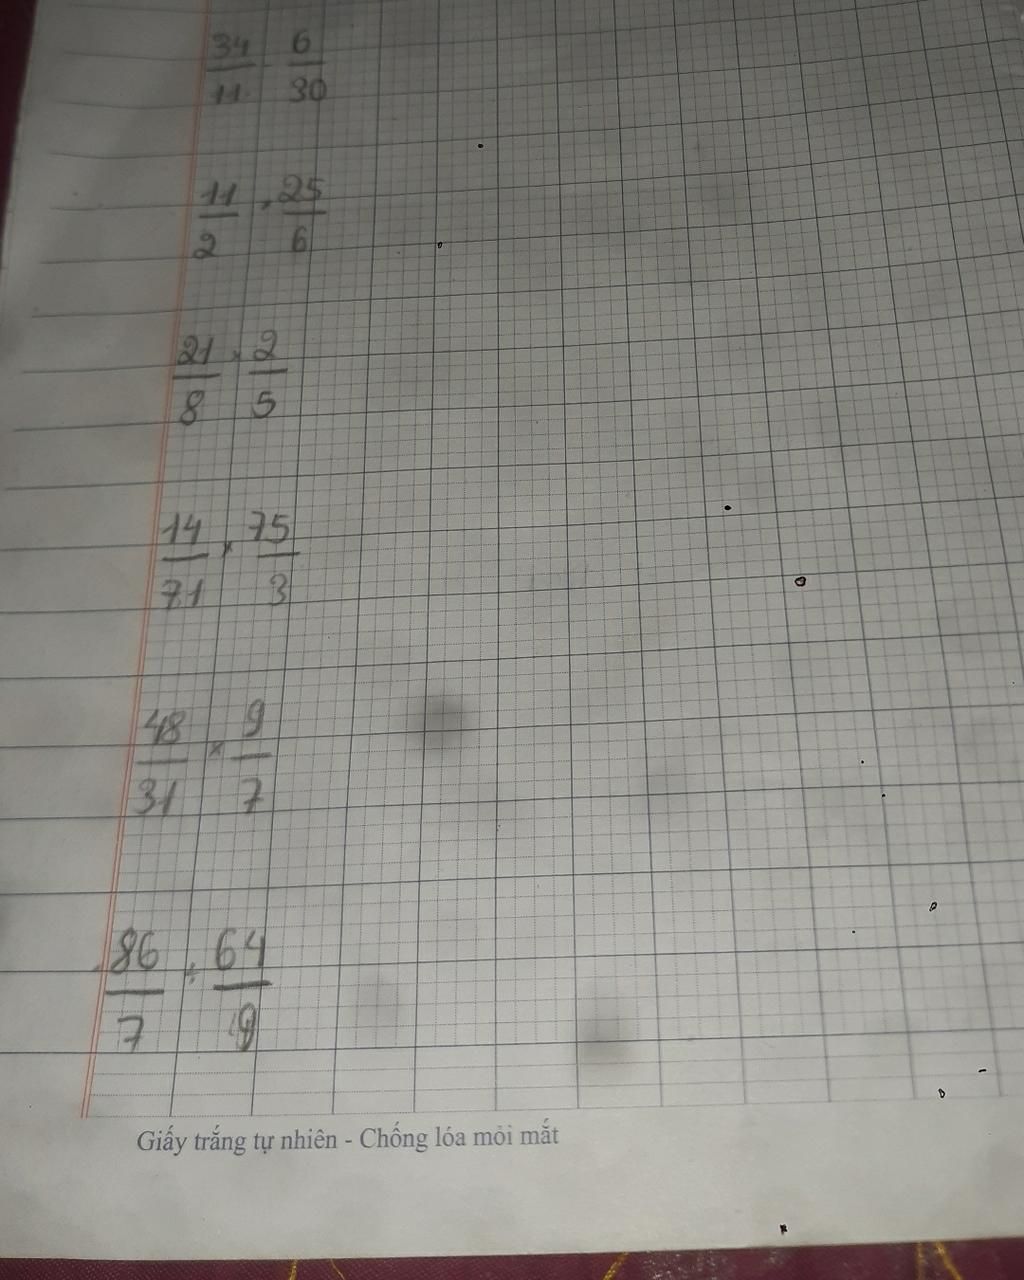 34/11 - 6/30
11/2 × 25/6
21/8 × 2/5
14/71 × 75/3
48/31 × 9/7
86/7 ÷ 64/9
Giấy trắng tự nhiên - Chống lóa mỏi mắt